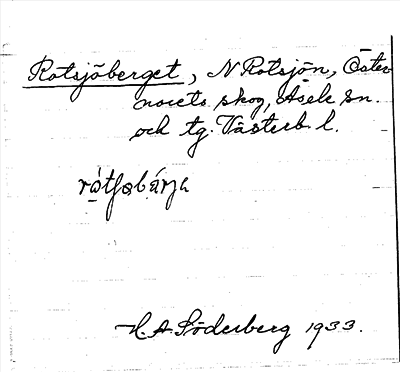 Rotsjöberget, N Rotsjön, Öster
norets skog, Åsele sn.
och tg. Västerb. l.
rótʃøbárja
H. A. Söderberg 1933.